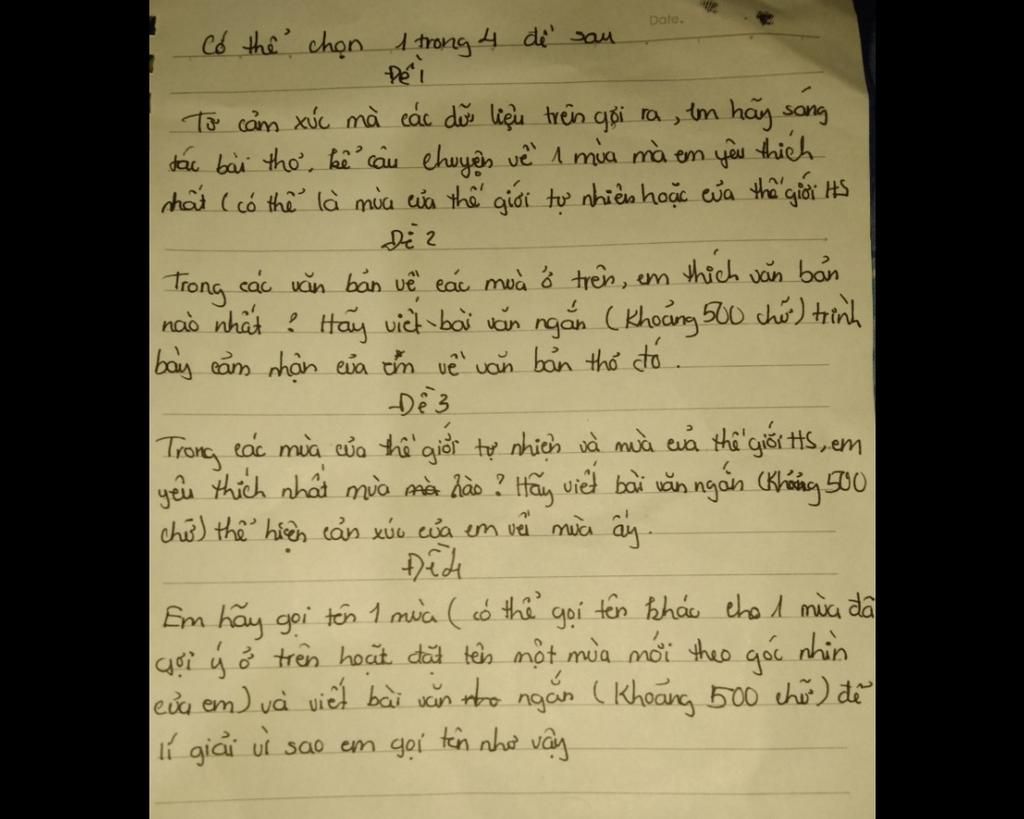 Date.
Có thể chọn 1 trong 4 đề sau
Đề 1
Từ cảm xúc mà các dữ liệu trên gợi ra, em hãy sáng
tác bài thơ, kể câu chuyện về 1 mùa mà em yêu thích
nhất (có thể là mùa của thế giới tự nhiên hoặc của thế giới HS
Đề 2
Trong các văn bản về các muà ở trên, em thích văn bản
nào nhất? Hãy viết bài văn ngắn (Khoảng 500 chữ) trình
bày cảm nhận của em về văn bản thơ đó.
Đề 3
Trong các mùa của thế giới tự nhiên và mùa của thế giới HS, em
yêu thích nhất mùa nào? Hãy viết bài văn ngắn (Khoảng 500
chữ) thể hiện cản xúc của em về mùa ấy.
Đề 4
Em hãy gọi tên 1 mùa (có thể gọi tên khác cho 1 mùa đã
gợi ý ở trên hoặt đặt tên một mùa mới theo góc nhìn
của em) và viết bài văn ngắn (Khoảng 500 chữ) để
lí giải vì sao em gọi tên như vậy